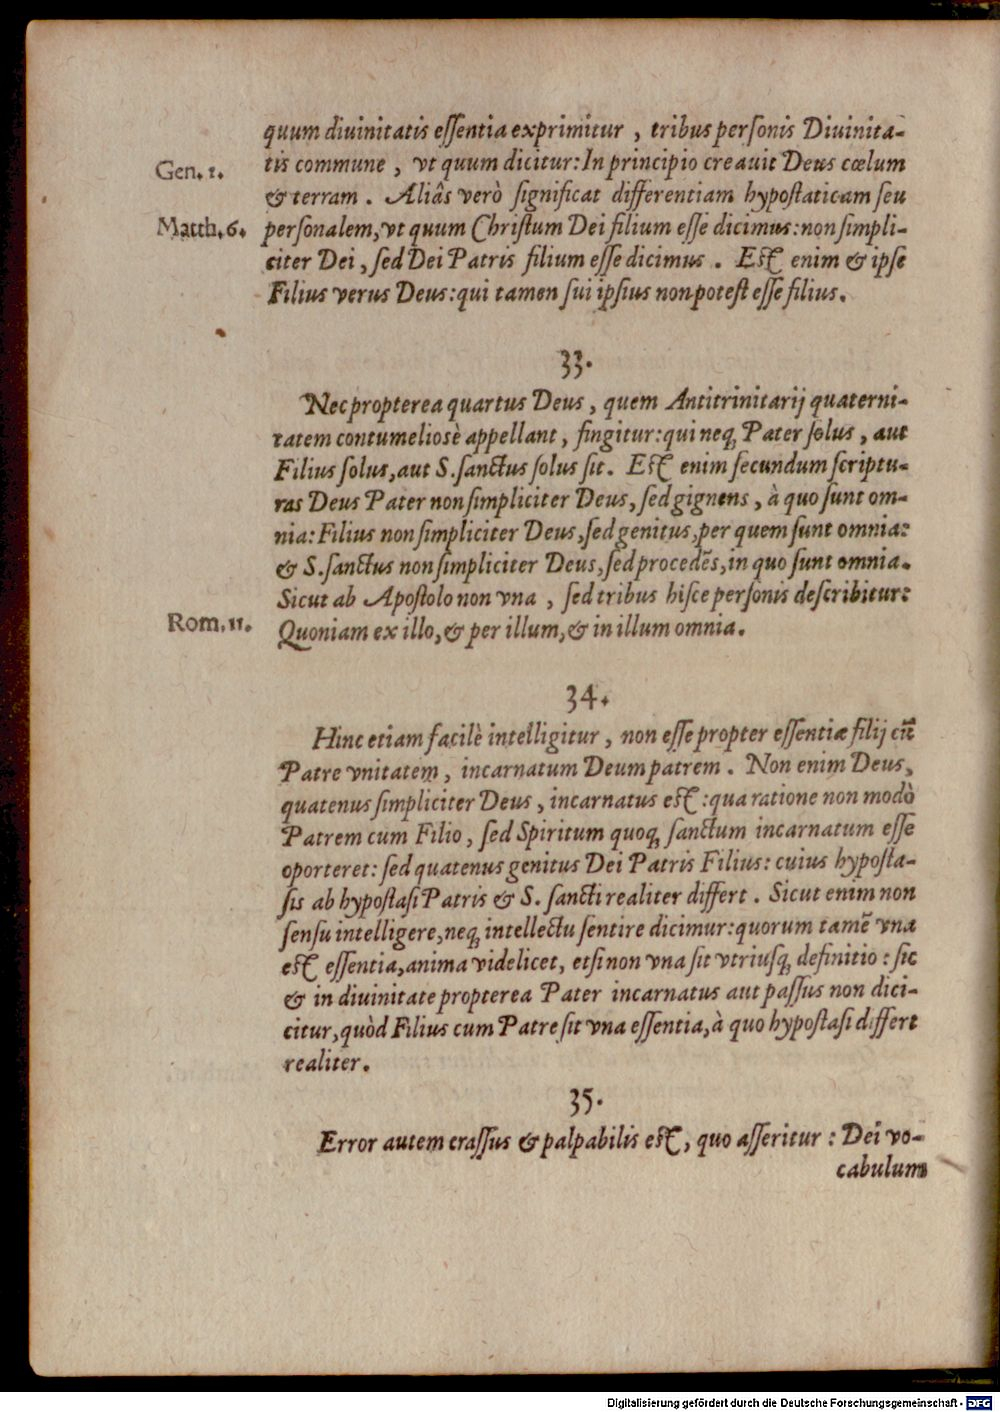 quum diuinitatis eſſentia exprimitur, tribus perſonis Diuinita-
Gen. 1. tis commune, vt quum dicitur: In principio creauit Deus cœlum
& terram. Aliâs verò ſignificat differentiam hypoſtaticam ſeu
Matth. 6. perſonalem, vt quum Chriſtum Dei filium eſſe dicimus: non ſimpli-
citer Dei, ſed Dei Patris filium eſſe dicimus. Eſt enim & ipſe
Filius verus Deus: qui tamen ſui ipſius non poteſt eſſe filius.
33.
Nec propterea quartus Deus, quem Antitrinitarij quaterni-
tatem contumelioſè appellant, fingitur: qui neq; Pater ſolus, aut
Filius ſolus, aut S. ſanctus ſolus ſit. Eſt enim ſecundum ſcriptu-
ras Deus Pater non ſimpliciter Deus, ſed gignens, à quo ſunt om-
nia: Filius non ſimpliciter Deus, ſed genitus, per quem ſunt omnia:
& S. ſanctus non ſimpliciter Deus, ſed procedẽs, in quo ſunt omnia.
Sicut ab Apoſtolo non vna, ſed tribus hiſce perſonis deſcribitur:
Rom. 11. Quoniam ex illo, & per illum, & in illum omnia.
34.
Hinc etiam facilè intelligitur, non eſſe propter eſſentiæ filij cũ
Patre vnitatem, incarnatum Deum patrem. Non enim Deus,
quatenus ſimpliciter Deus, incarnatus eſt: qua ratione non modò
Patrem cum Filio, ſed Spiritum quoq; ſanctum incarnatum eſſe
oporteret: ſed quatenus genitus Dei Patris Filius: cuius hypoſta-
ſis ab hypoſtaſi Patris & S. ſancti realiter differt. Sicut enim non
ſenſu intelligere, neq; intellectu ſentire dicimur: quorum tamẽ vna
eſt eſſentia, anima videlicet, etſi non vna ſit vtriuſq; definitio: ſic
& in diuinitate propterea Pater incarnatus aut paſſus non dici-
citur, quòd Filius cum Patre ſit vna eſſentia, à quo hypoſtaſi differt
realiter.
35.
Error autem craſſus & palpabilis eſt, quo aſſeritur: Dei vo-
cabulum
Digitalisierung gefördert durch die Deutsche Forschungsgemeinschaft - DFG